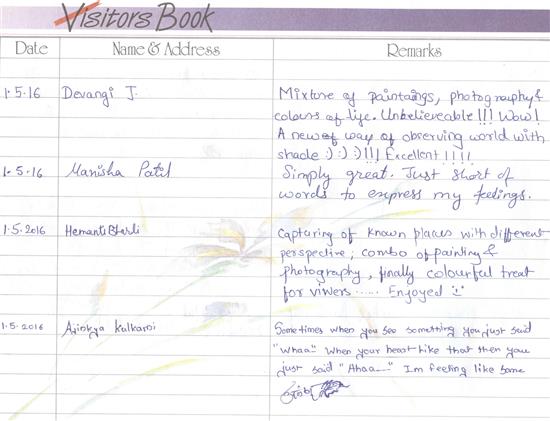 Visitors Book
Date Name & Address Remarks
1.5.16 Devangi J. Mixture of paintaings, photography &
colours of life. Unbelieveable!!! Wow!
A new of way of observing world with
shade :) :) :)!!! Excellent!!!!
1.5.16 Manisha Patil Simply great. Just short of
words to express my feelings.
1.5.2016 Hemant Capturing of known places with different
perspective, combo of painting &
photography, finally colourful treat
for viwers ...... Enjoyed
1.5.2016 Ajinkya Kulkarni Sometimes when you see something you just said
"Whaa-" When your heart like that then you
just said "Ahaa—" Im feeling like same